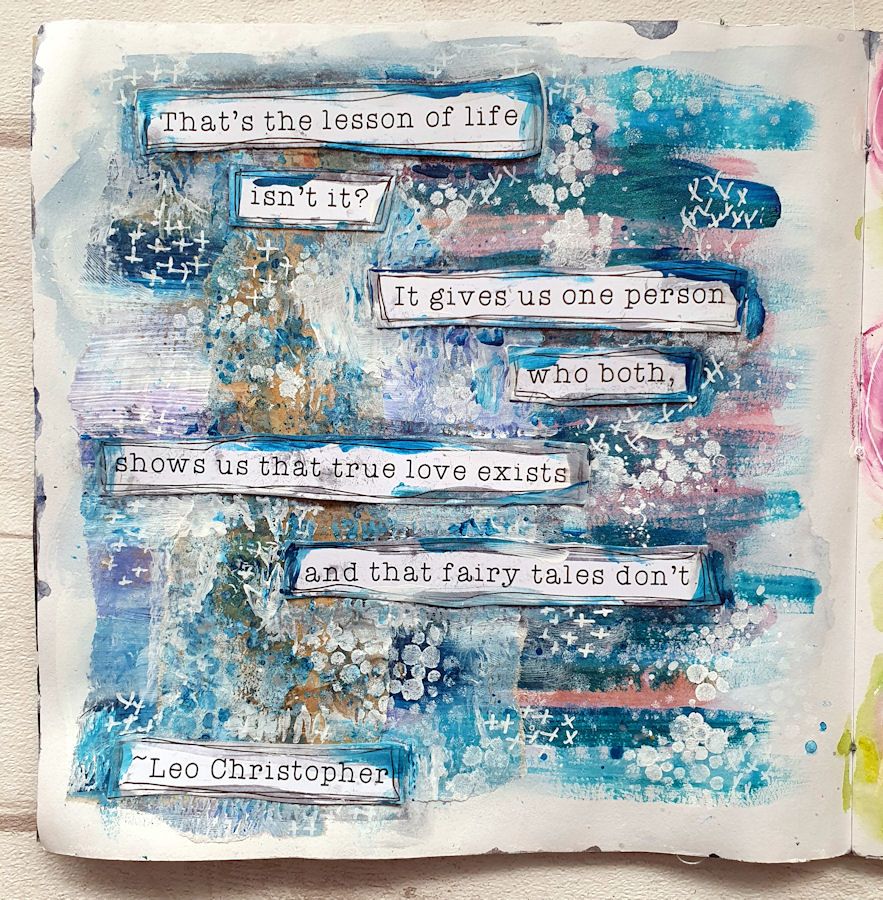 That's the lesson of life
isn't it?
It gives us one person
who both,
shows us that true love exists
and that fairy tales don't.
~Leo Christopher